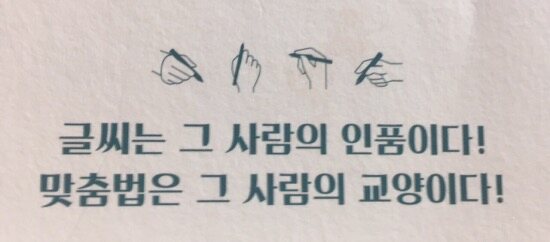 글씨는 그 사람의 인품이다!
맞춤법은 그 사람의 교양이다!